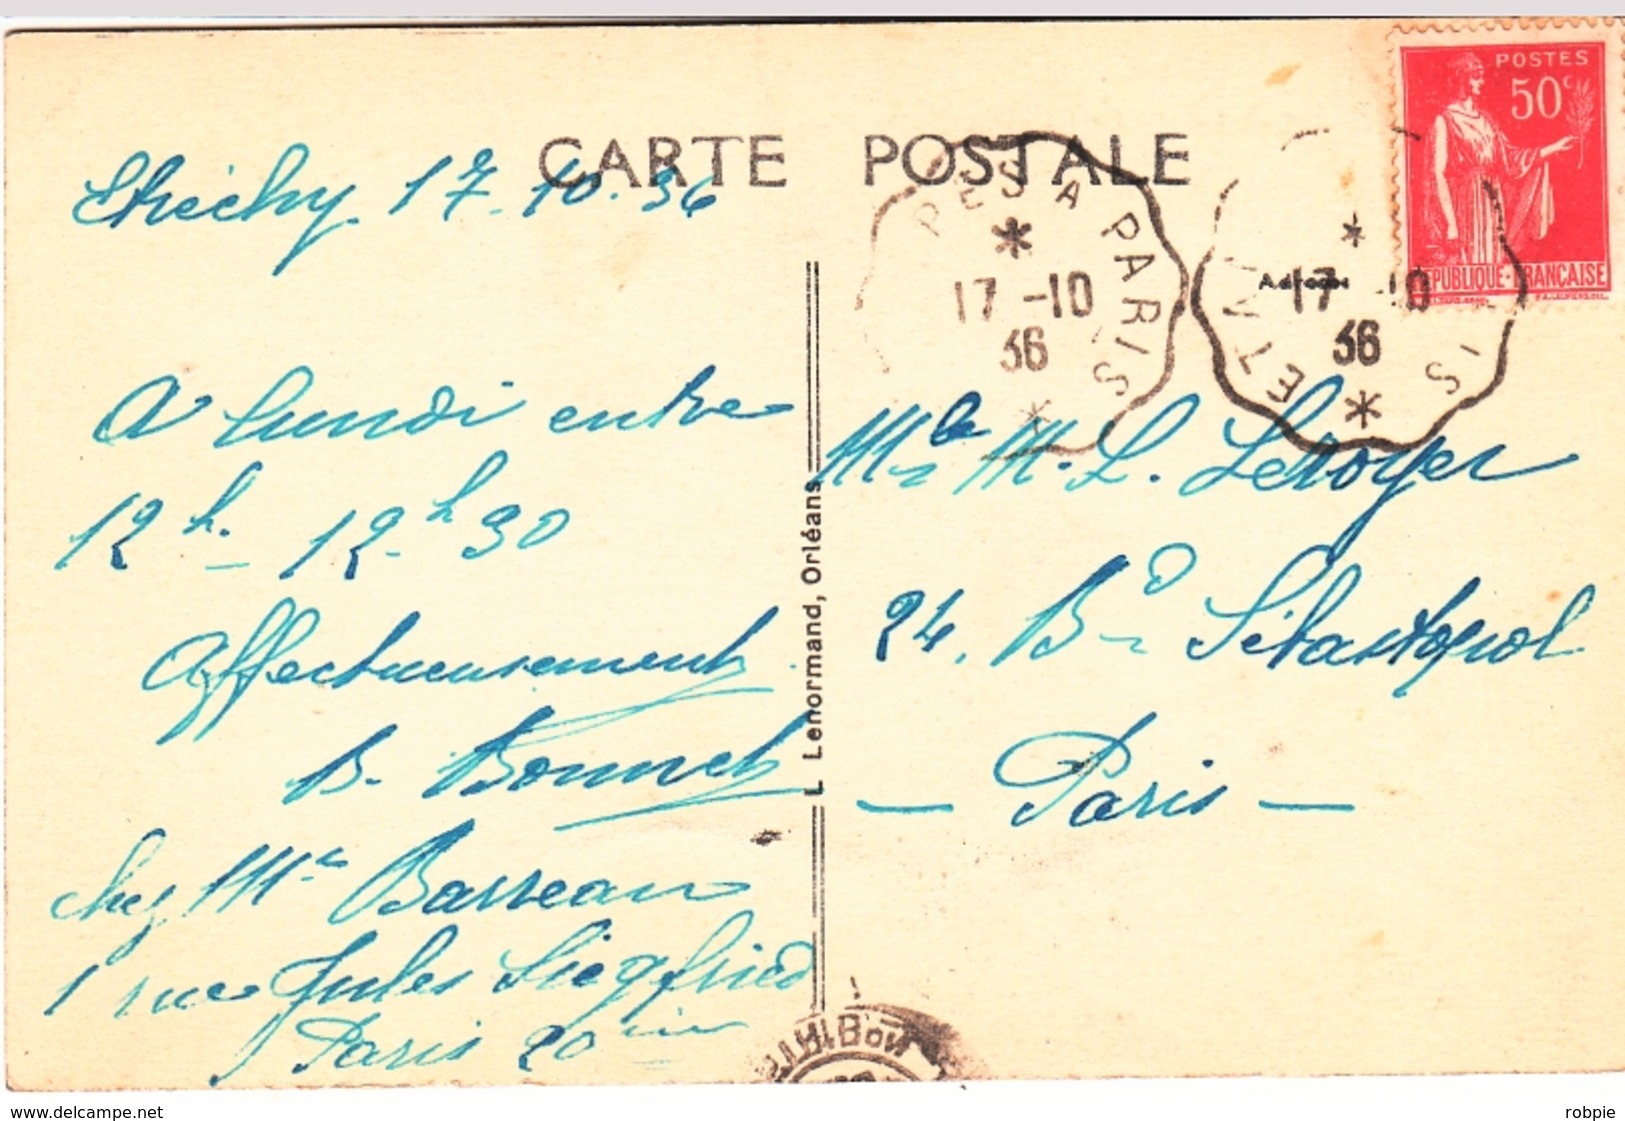 CARTE POSTALE
POSTES
50c
RÉPUBLIQUE-FRANÇAISE
17-10
36
A PARIS
17 -10
36
17.10.36
A lundi entre
12h. - 12h30
Affectueusement
B. Bonnet
chez Me Barreau
1 rue Jules Siegfried
Paris 20
L Lenormand, Orléans
Mlle M. L. Leroyer
24. Bd Sébastopol
— Paris —
www.delcampe.net
robpie